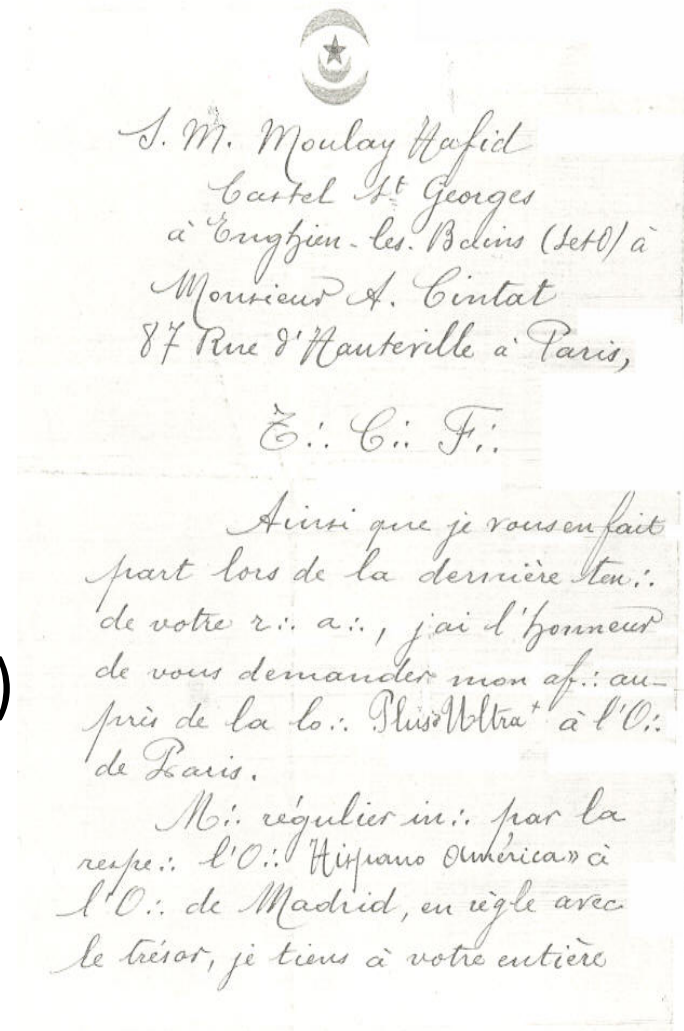 S. M. Moulay Hafid
Castel St Georges
à Enghien-les-Bains (SetO) à
Monsieur A. Cintat
87 Rue d'Hauteville à Paris,
T∴ C∴ F∴
Ainsi que je vous en fait
part lors de la dernière ten∴
de votre r∴ a∴, j'ai l'honneur
de vous demander mon af∴ au-
près de la lo∴ Plus Ultra à l'O∴
de Paris.
M∴ régulier in∴ par la
respe∴ l'O∴ Hispano América» à
l'O∴ de Madrid, en règle avec
le trésor, je tiens à votre entière
)